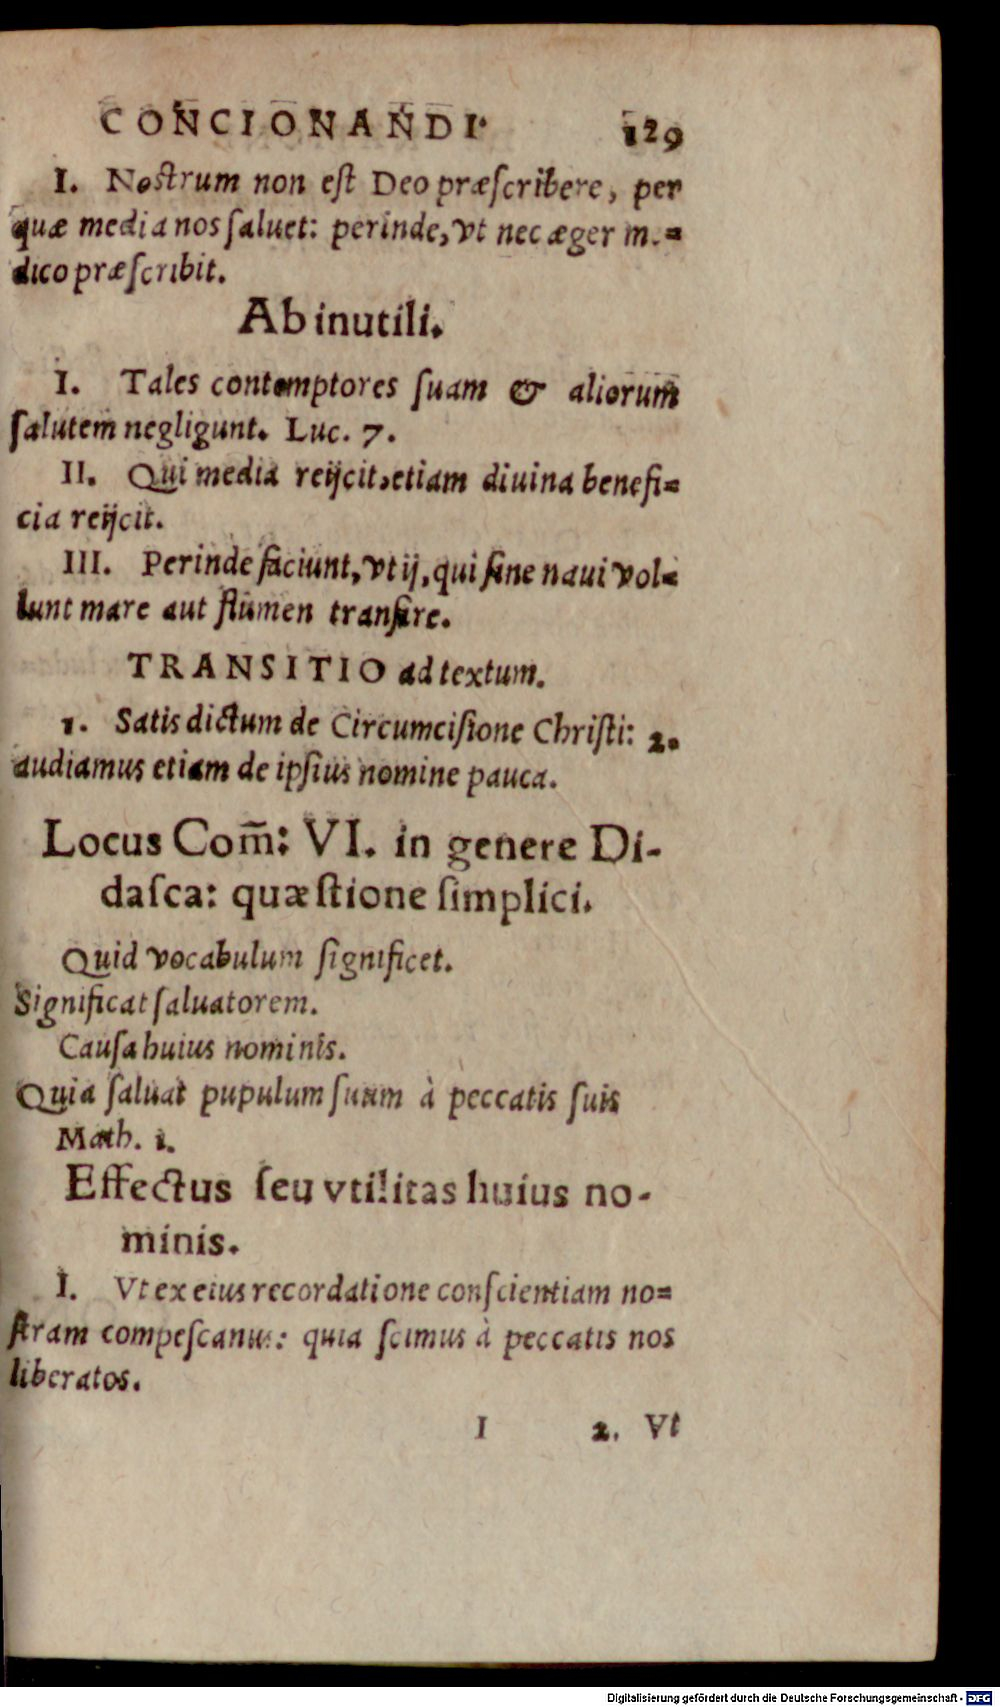 CONCIONANDI. 129
I. Nostrum non eſt Deo præſcribere, per
quæ media nos ſaluet: perinde, vt nec æger m.=
dico præſcribit.
Ab inutili.
I. Tales contemptores ſuam & aliorum
ſalutem negligunt. Luc. 7.
II. Qui media reijcit, etiam diuina benefi=
cia reijcit.
III. Perinde faciunt, vt ij, qui ſine naui vol=
lunt mare aut flumen tranſire.
TRANSITIO ad textum.
1. Satis dictum de Circumciſione Chriſti: 2.
audiamus etiam de ipſius nomine pauca.
Locus Com̃: VI. in genere Di-
daſca: quæſtione ſimplici.
Quid vocabulum ſignificet.
Significat ſaluatorem.
Cauſa huius nominis.
Quia ſaluat pupulum ſuum à peccatis ſuis
Math. 1.
Effectus ſeu vtilitas huius no-
minis.
I. Vt ex eius recordatione conſcientiam no=
ſtram compeſcamus: quia ſcimus à peccatis nos
liberatos.
I 2. Vt
Digitalisierung gefördert durch die Deutsche Forschungsgemeinschaft - DFG